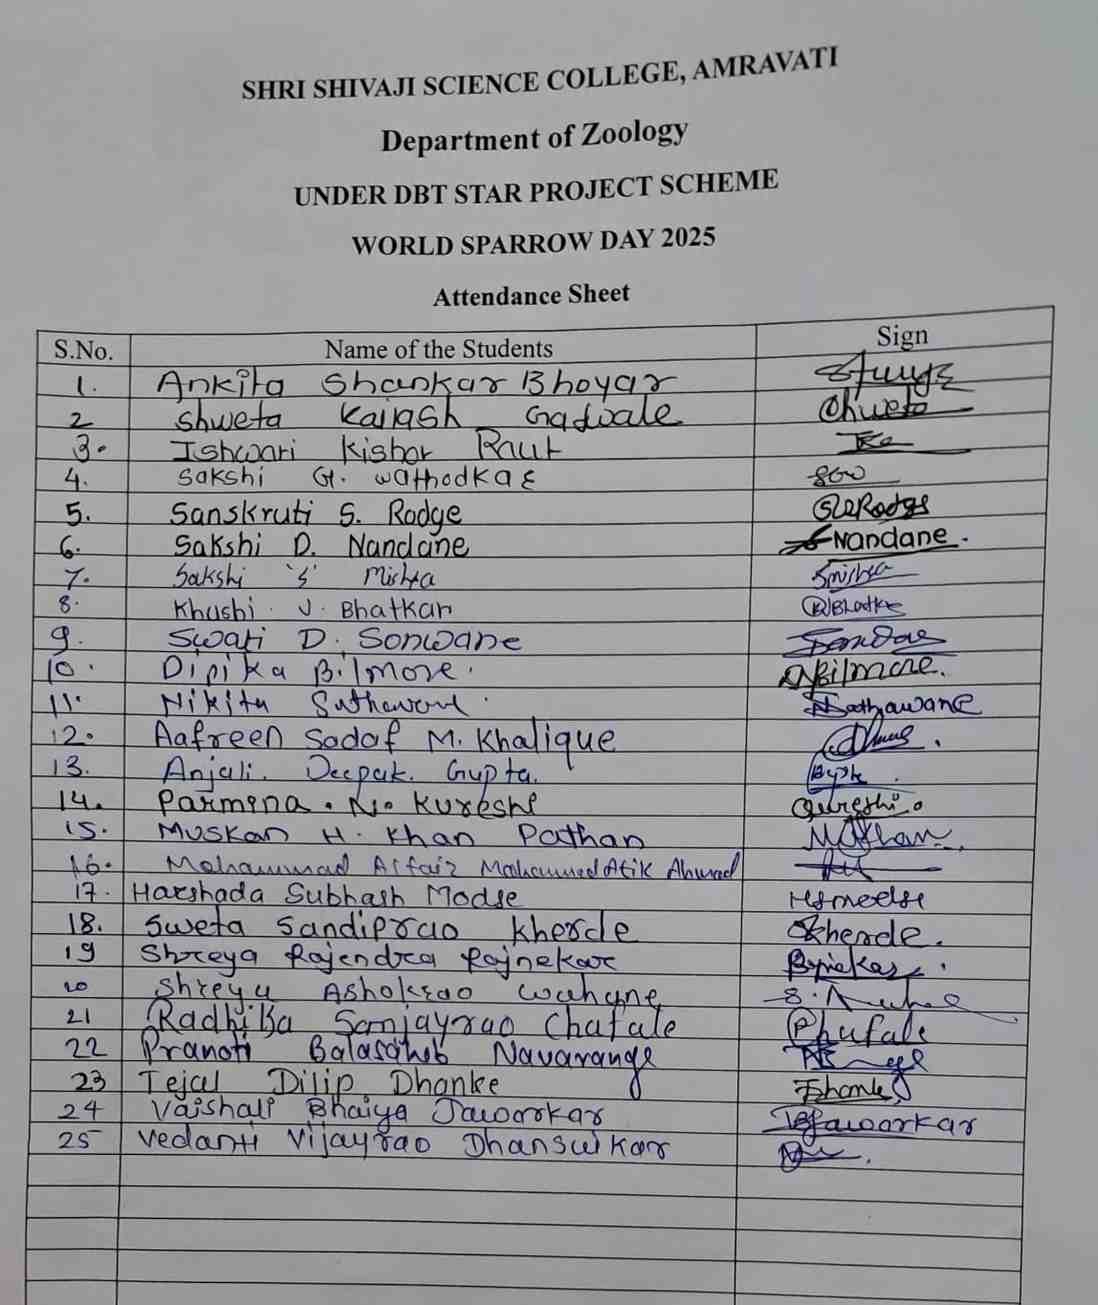 SHRI SHIVAJI SCIENCE COLLEGE, AMRAVATI
Department of Zoology
UNDER DBT STAR PROJECT SCHEME
WORLD SPARROW DAY 2025
Attendance Sheet
S.No. Name of the Students Sign
1. Ankita Shankar Bhoyar
2 Shweta Kailash Gadwale Shweta
3. Ishwari Kishor Raut
4. Sakshi G. Wathodkar
5. Sanskruti S. Rodge SRodge
6. Sakshi D. Nandane Nandane.
7. Sakshi 'S' Mishra Smishra
8. Khushi. V. Bhatkar Bhatkar
9. Swati D. Sonwane
10. Dipika Bilmore. Bilmore.
11. Nikita Sathawane Sathawane
12. Aafreen Sadaf M. Khalique
13. Anjali. Deepak. Gupta.
14. Parmina. N. Kureshi Qureshi.
15. Muskan H. Khan Pathan
16. Mohammad Alfaiz Mohammed Atik Ahmad
17. Harshada Subhash Madse
18. Sweta Sandiprao Kherde Skherde.
19 Shreya Rajendra Rajnekar
20 Shreya Ashokrao Wahane
21 Radhika Sanjayrao Chafale
22 Pranoti Balasaheb Navarange
23 Tejal Dilip Dhanke
24 Vaishali Bhaiya Jaworkar Jaworkar
25 Vedanti Vijayrao Dhanswikar